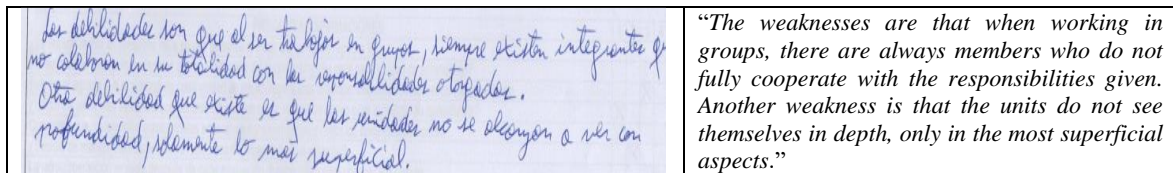 Las debilidades son que al ser trabajos en grupos, siempre existen integrantes q
no colaboran en su totalidad con las responsabilidades otorgadas.
Otra debilidad que existe es que las unidades no se alcanzan a ver con
profundidad, solamente lo mas superficial.
“The weaknesses are that when working in
groups, there are always members who do not
fully cooperate with the responsibilities given.
Another weakness is that the units do not see
themselves in depth, only in the most superficial
aspects.”